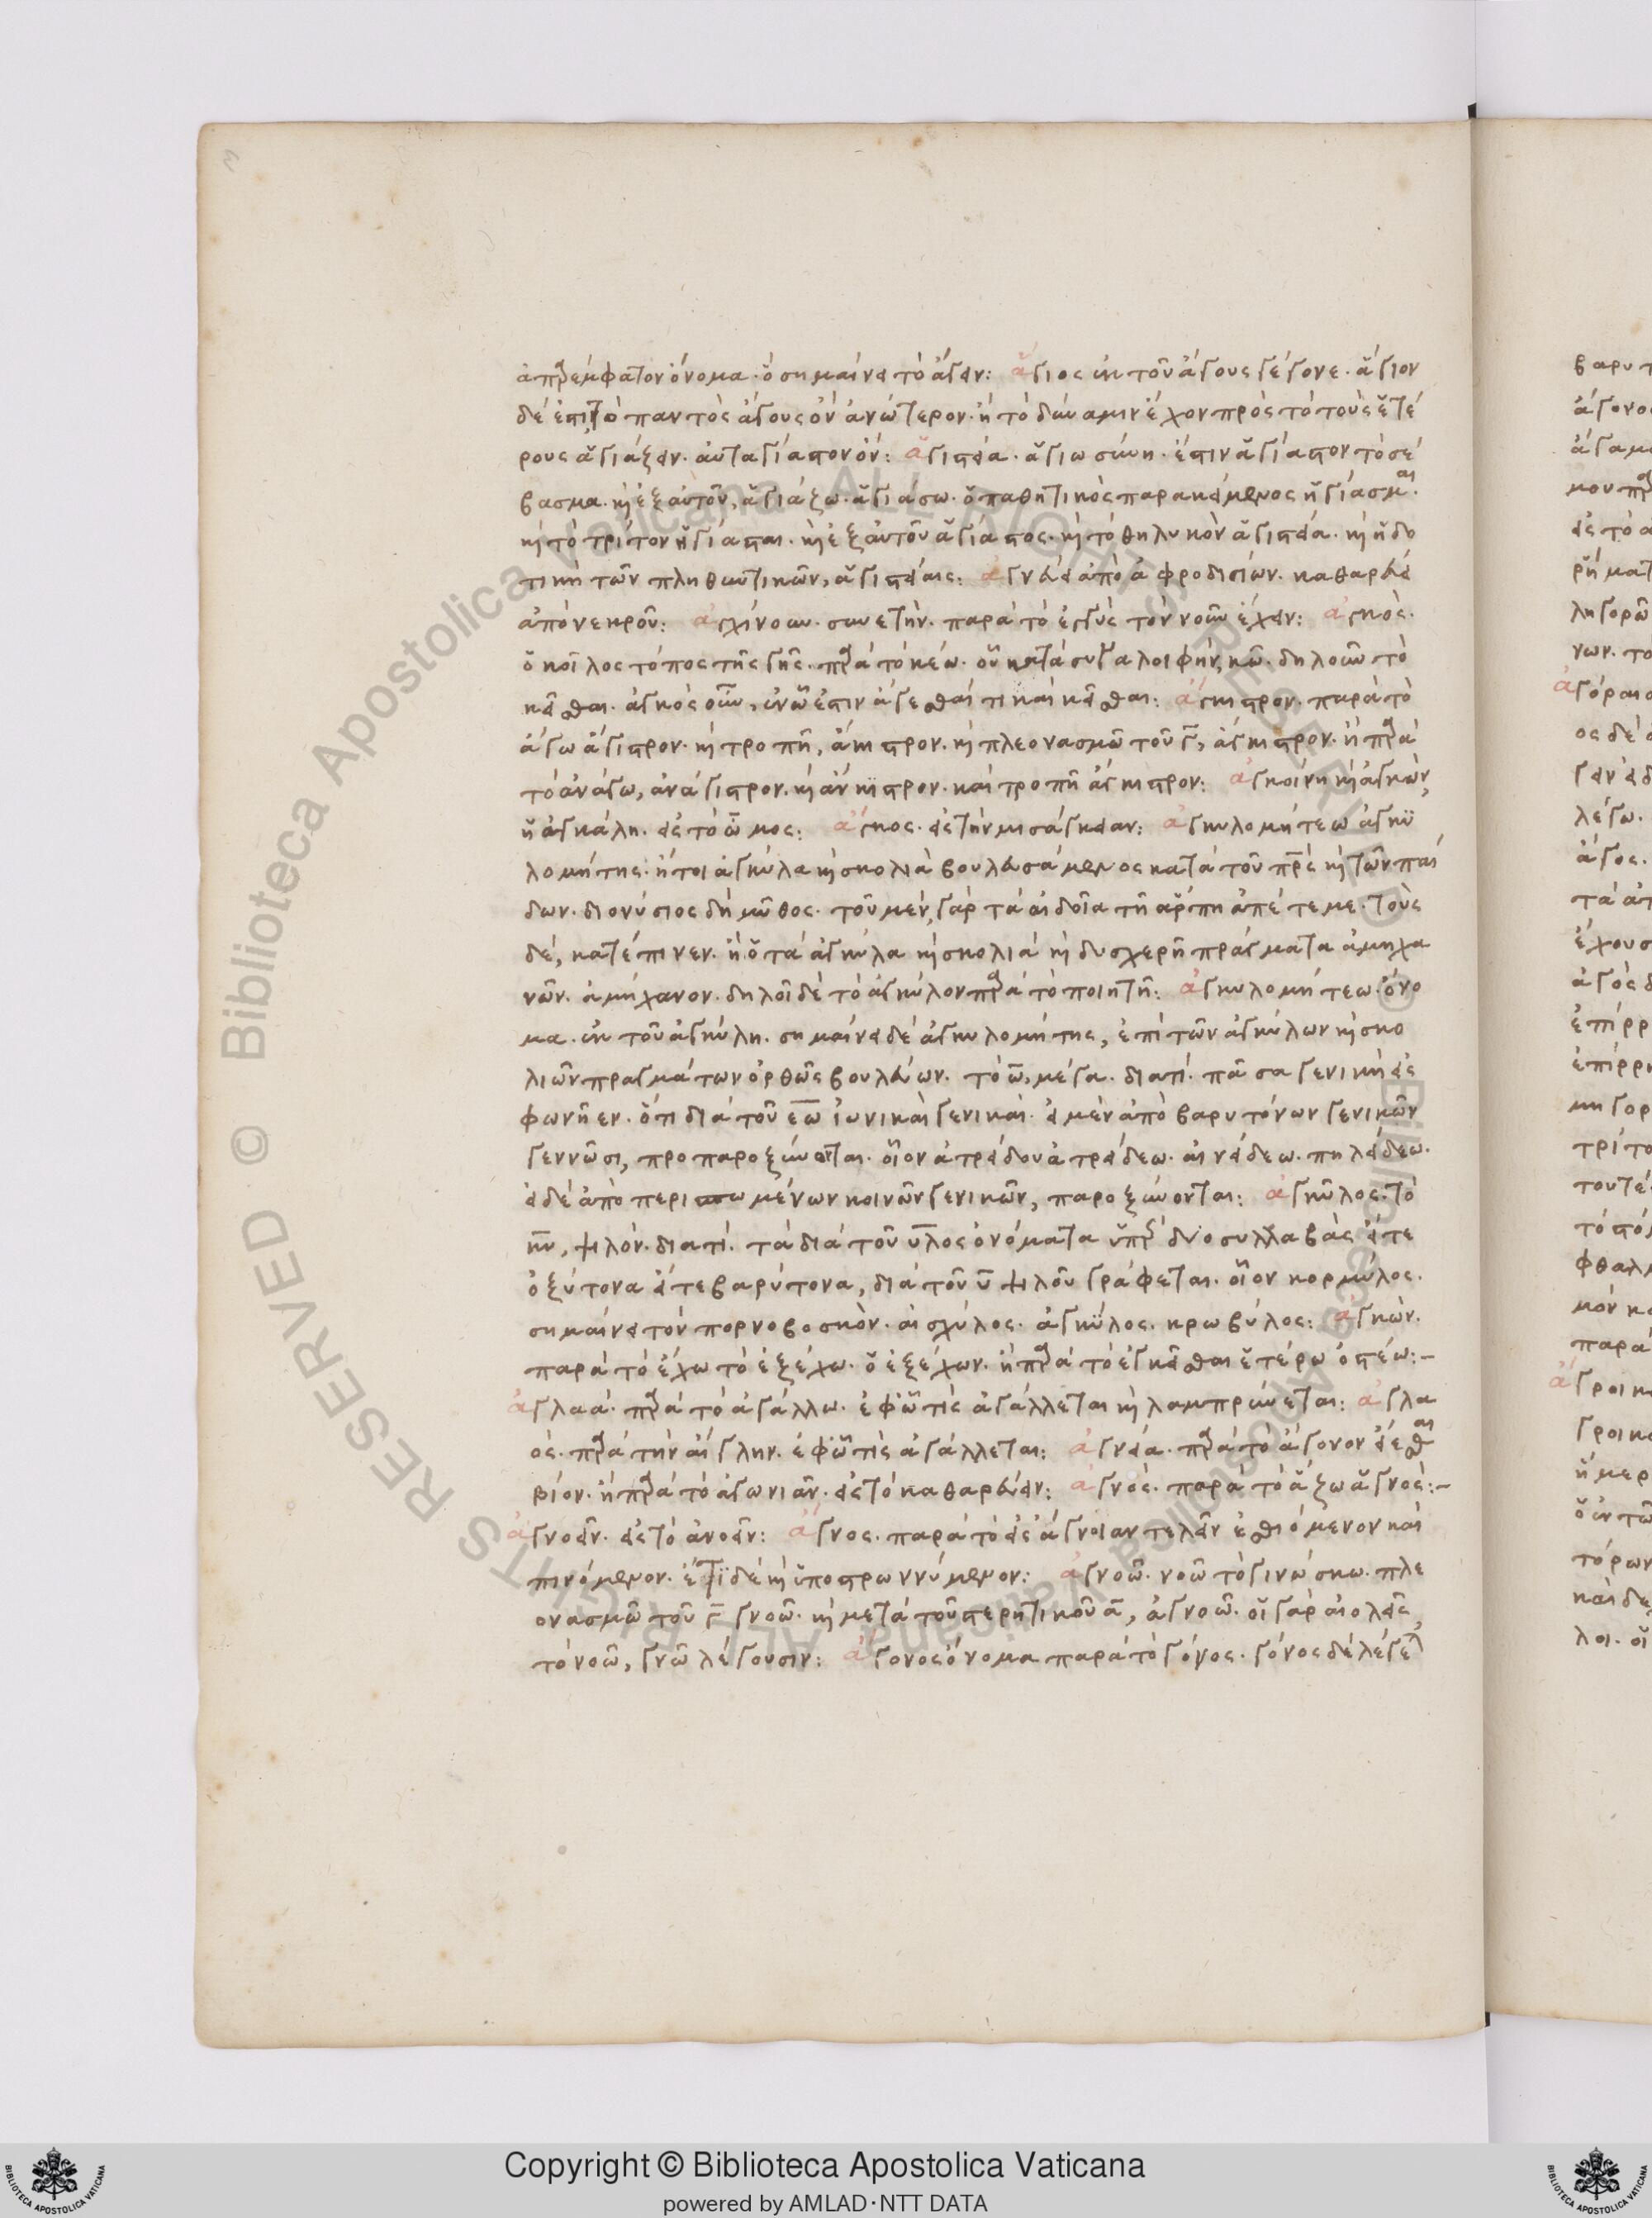 ἀπρέμφατον ὄνομα· ὃ σημαίνει τὸ ἄγειν: ἅγιος ἐκ τοῦ ἄγους γέγονε· ἅγιον
δὲ ἐπὶ τὸ παντὸς ἄγους ὂν ἀνώτερον· ἢ τὸ δύναμιν ἔχον πρὸς τὸ τοὺς ἑτέ
ρους ἁγιάζειν· αὐταγίαστον ὄν: ἁγιστεία· ἁγιωσύνη· ἔστιν ἁγίαστον τὸ σέ
βασμα· καὶ ἐξ αὐτοῦ, ἁγιάζω· ἁγιάσω· ὁ παθητικὸς παρακείμενος ἡγίασμαι·
καὶ τὸ τρίτον ἡγίασται· καὶ ἐξ αὐτοῦ ἁγίαστος· καὶ τὸ θηλυκὸν ἁγιστεία· καὶ ἡ δο
τικὴ τῶν πληθυντικῶν, ἁγιστείαις: ἁγνεύει ἀπὸ ἀφροδισίων· καθαρεύει
ἀπὸ νεκροῦ: ἀγχίνουν· συνετήν· παρὰ τὸ ἐγγὺς τὸν νοῦν ἔχειν: ἀγκος·
ὁ κοῖλος τόπος τῆς γῆς· παρὰ τὸ κέω· οὗ κατὰ συναλοιφήν, κῶ· δηλοῦν τὸ
κεῖσθαι· ἄγκος οὖν, ἐν ᾧ ἔστιν ἄγεσθαί τι καὶ κεῖσθαι: ἄγκιστρον· παρὰ τὸ
ἄγω ἄγιστρον· καὶ τροπῇ, ἄκιστρον· καὶ πλεονασμῷ τοῦ γ, ἄγκιστρον· ἢ παρὰ
τὸ ἀνάγω, ἀνάγιστρον· καὶ ἄνκιστρον· καὶ τροπῇ ἄγκιστρον: ἀγκοίνη καὶ ἀγκών,
ἡ ἀγκάλη· εἰς τὸ ὦμος: ἄγκος· εἰς τὴν μισάγκειαν: ἀγκυλομήτεω ἀγκυ
λομήτης· ἤτοι ἀγκύλα καὶ σκολιὰ βουλευσάμενος κατὰ τοῦ πρς καὶ τῶν παί
δων· διονύσιος δὴ μῦθος· τοῦ μὲν γὰρ τὰ αἰδοῖα τῇ ἅρπῃ ἀπέτεμε· τοὺς
δὲ, κατέπινεν· ἢ ὁ τὰ ἀγκύλα καὶ σκολιὰ καὶ δυσχερῆ πράγματα ἀμηχα
νῶν· ἀμήχανον· δηλοῖ δὲ τὸ ἀγκύλον παρὰ τὸ ποιητῇ: ἀγκυλομήτεω· ὄνο
μα· ἐκ τοῦ ἀγκύλη· σημαίνει δὲ ἀγκυλομήτης, ἐπὶ τῶν ἀγκύλων καὶ σκο
λιῶν πραγμάτων ὀρθῶς βουλεύων· τὸ ω, μέγα· διατί· πᾶσα γενικὴ εἰς
φωνῆεν· ὅτι διὰ τοῦ εω ἰωνικαὶ γενικαί· εἰ μὲν ἀπὸ βαρυτόνων γενικῶν
γεννῶσι, προπαροξύνονται· οἷον ἀτρείδου ἀτρείδεω· αἰνείδεω· πηλείδεω·
εἰ δὲ ἀπὸ περισπωμένων κοινῶν γενικῶν, παροξύνονται: ἀγκύλος· τὸ
κυ, ψιλόν· διατί· τὰ διὰ τοῦ υλος ὀνόματα ὑπὲρ δύο συλλαβὰς εἴτε
ὀξύτονα εἴτε βαρύτονα, διὰ τοῦ υ ψιλοῦ γράφεται· οἷον κορμύλος·
σημαίνει τὸν πορνοβοσκόν· αἰσχύλος· ἀγκύλος· κρωβύλος: ἀγκών·
παρὰ τὸ ἔχω τὸ ἐξέχω· ὁ ἐξέχων· ἢ παρὰ τὸ ἐγκεῖσθαι ἑτέρῳ ὀστέῳ:–
ἀγλαά· παρὰ τὸ ἀγάλλω· ἐφ᾽ ᾧ τις ἀγάλλεται καὶ λαμπρύνεται: ἀγλα
ός· παρὰ τὴν αἴγλην· ἐφ᾽ ᾧ τις ἀγάλλεται: ἁγνεία· παρὰ τὸ ἄγονον εἶσθαι
βίον· ἢ παρὰ τὸ ἀγωνιᾶν· εἰς τὸ καθαρεύειν: ἁγνός· παρὰ τὸ ἅζω ἁγνός:–
ἀγνοεῖν· εἰς τὸ ἀνοεῖν: ἄγνος· παρὰ τὸ εἰς ἄγνοιαν τελεῖν ἐσθιόμενον καὶ
πινόμενον· ἔτι δὲ καὶ ὑποστρωννύμενον: ἀγνοῶ· νοῶ τὸ γινώσκω· πλε
ονασμῷ τοῦ γ γνοῶ· καὶ μετὰ τοῦ στερητικοῦ α, ἀγνοῶ· οἱ γὰρ αἰολεῖς
τὸ νοῶ, γνῶ λέγουσιν: ἄγονος ὄνομα παρὰ τὸ γόνος· γόνος δὲ λέγετ
Copyright © Biblioteca Apostolica Vaticana
powered by AMLAD·NTT DATA